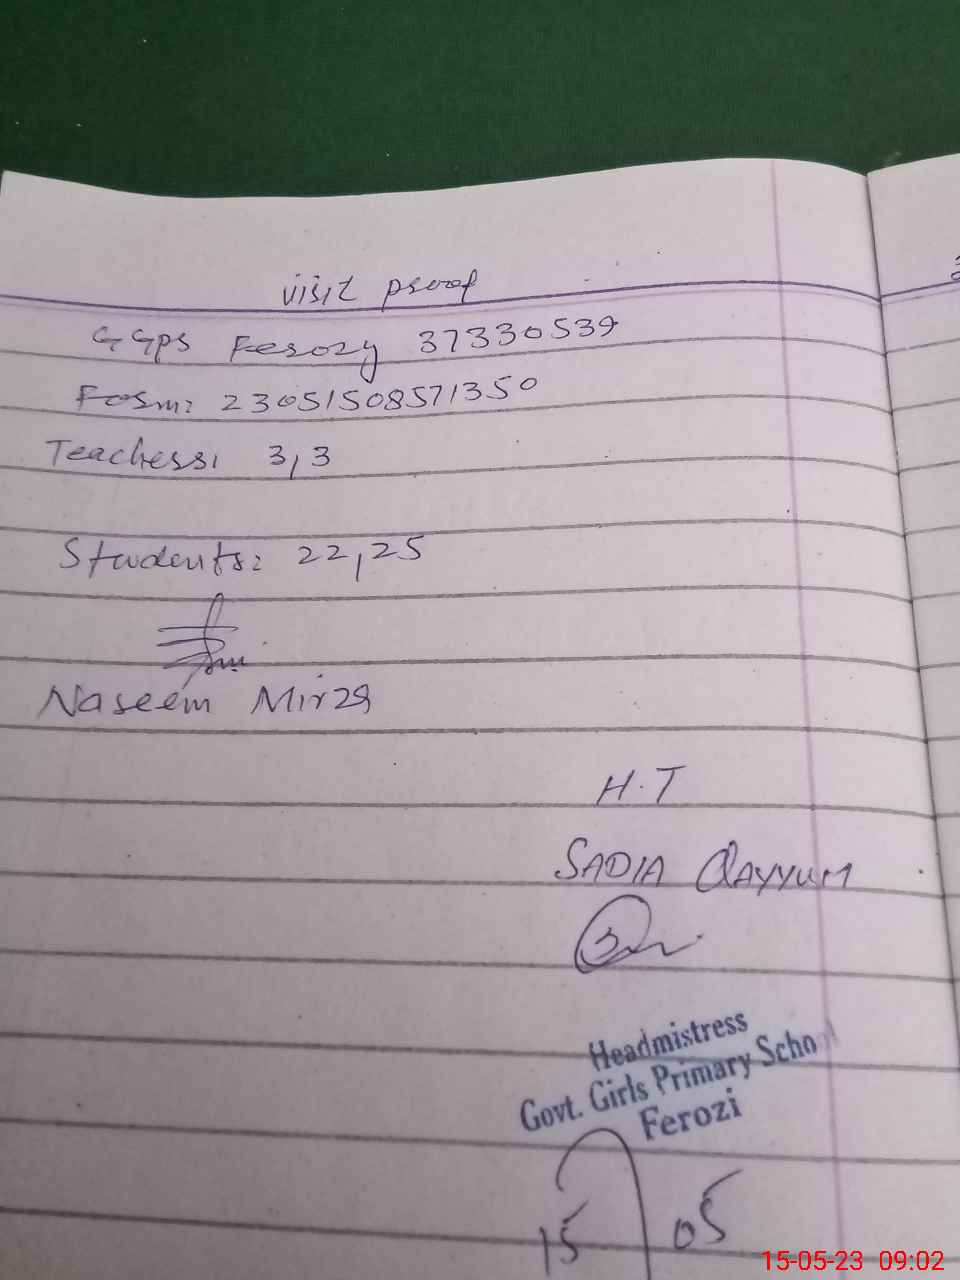 visit proof
GGPS Ferozy 37330539
Form: 23051508571350
Teachers: 3,3
Students: 22,25
Naseem Mirza
H.T
SADIA QAYYUM
Headmistress
Govt. Girls Primary School
Ferozi
15 05
15-05-23 09:02